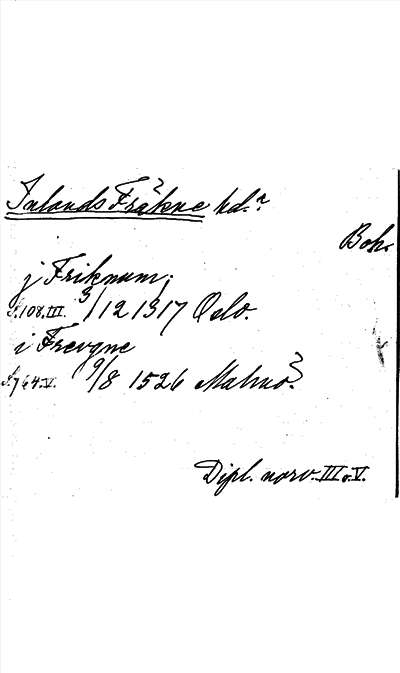 Inlands Fräkne hd.
Boh.
j Friknum;
S. 108. III. 3/12 1317 Oslo.
i Frevgne
S. 764. V. 9/8 1526 Malmö.
Dipl. norv. III o. V.